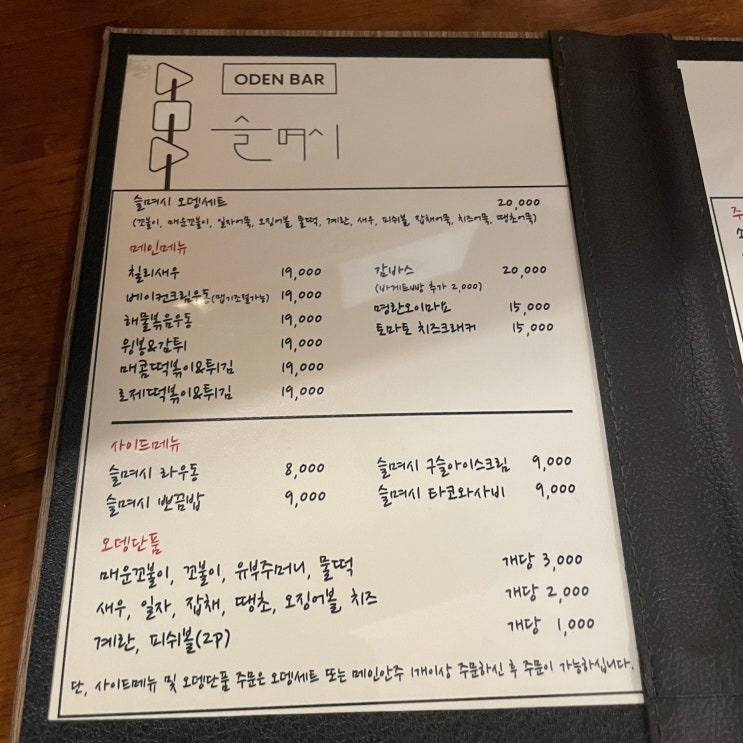 ODEN BAR
슬며시
슬며시 오뎅세트 20,000
(꼬불이, 매운꼬불이, 일자어묵, 오징어볼, 물떡, 계란, 새우, 피쉬볼, 잡채어묵, 치즈어묵, 땡초어묵)
메인메뉴
칠리새우 19,000
베이컨크림우동(맵기조절가능) 19,000
해물볶음우동 19,000
윙봉&감튀 19,000
매콤떡볶이&튀김 19,000
로제떡볶이&튀김 19,000
감바스 20,000
(바게트빵 추가 2,000)
명란오이마요 15,000
토마토 치즈크래커 15,000
사이드메뉴
슬며시 라우동 8,000
슬며시 뽀끔밥 9,000
슬며시 구슬아이스크림 9,000
슬며시 타코와사비 9,000
오뎅단품
매운꼬불이, 꼬불이, 유부주머니, 물떡 개당 3,000
새우, 일자, 잡채, 땡초, 오징어볼, 치즈 개당 2,000
계란, 피쉬볼(2P) 개당 1,000
단, 사이드메뉴 및 오뎅단품 주문은 오뎅세트 또는 메인안주 1개이상 주문하신 후 주문이 가능하십니다.